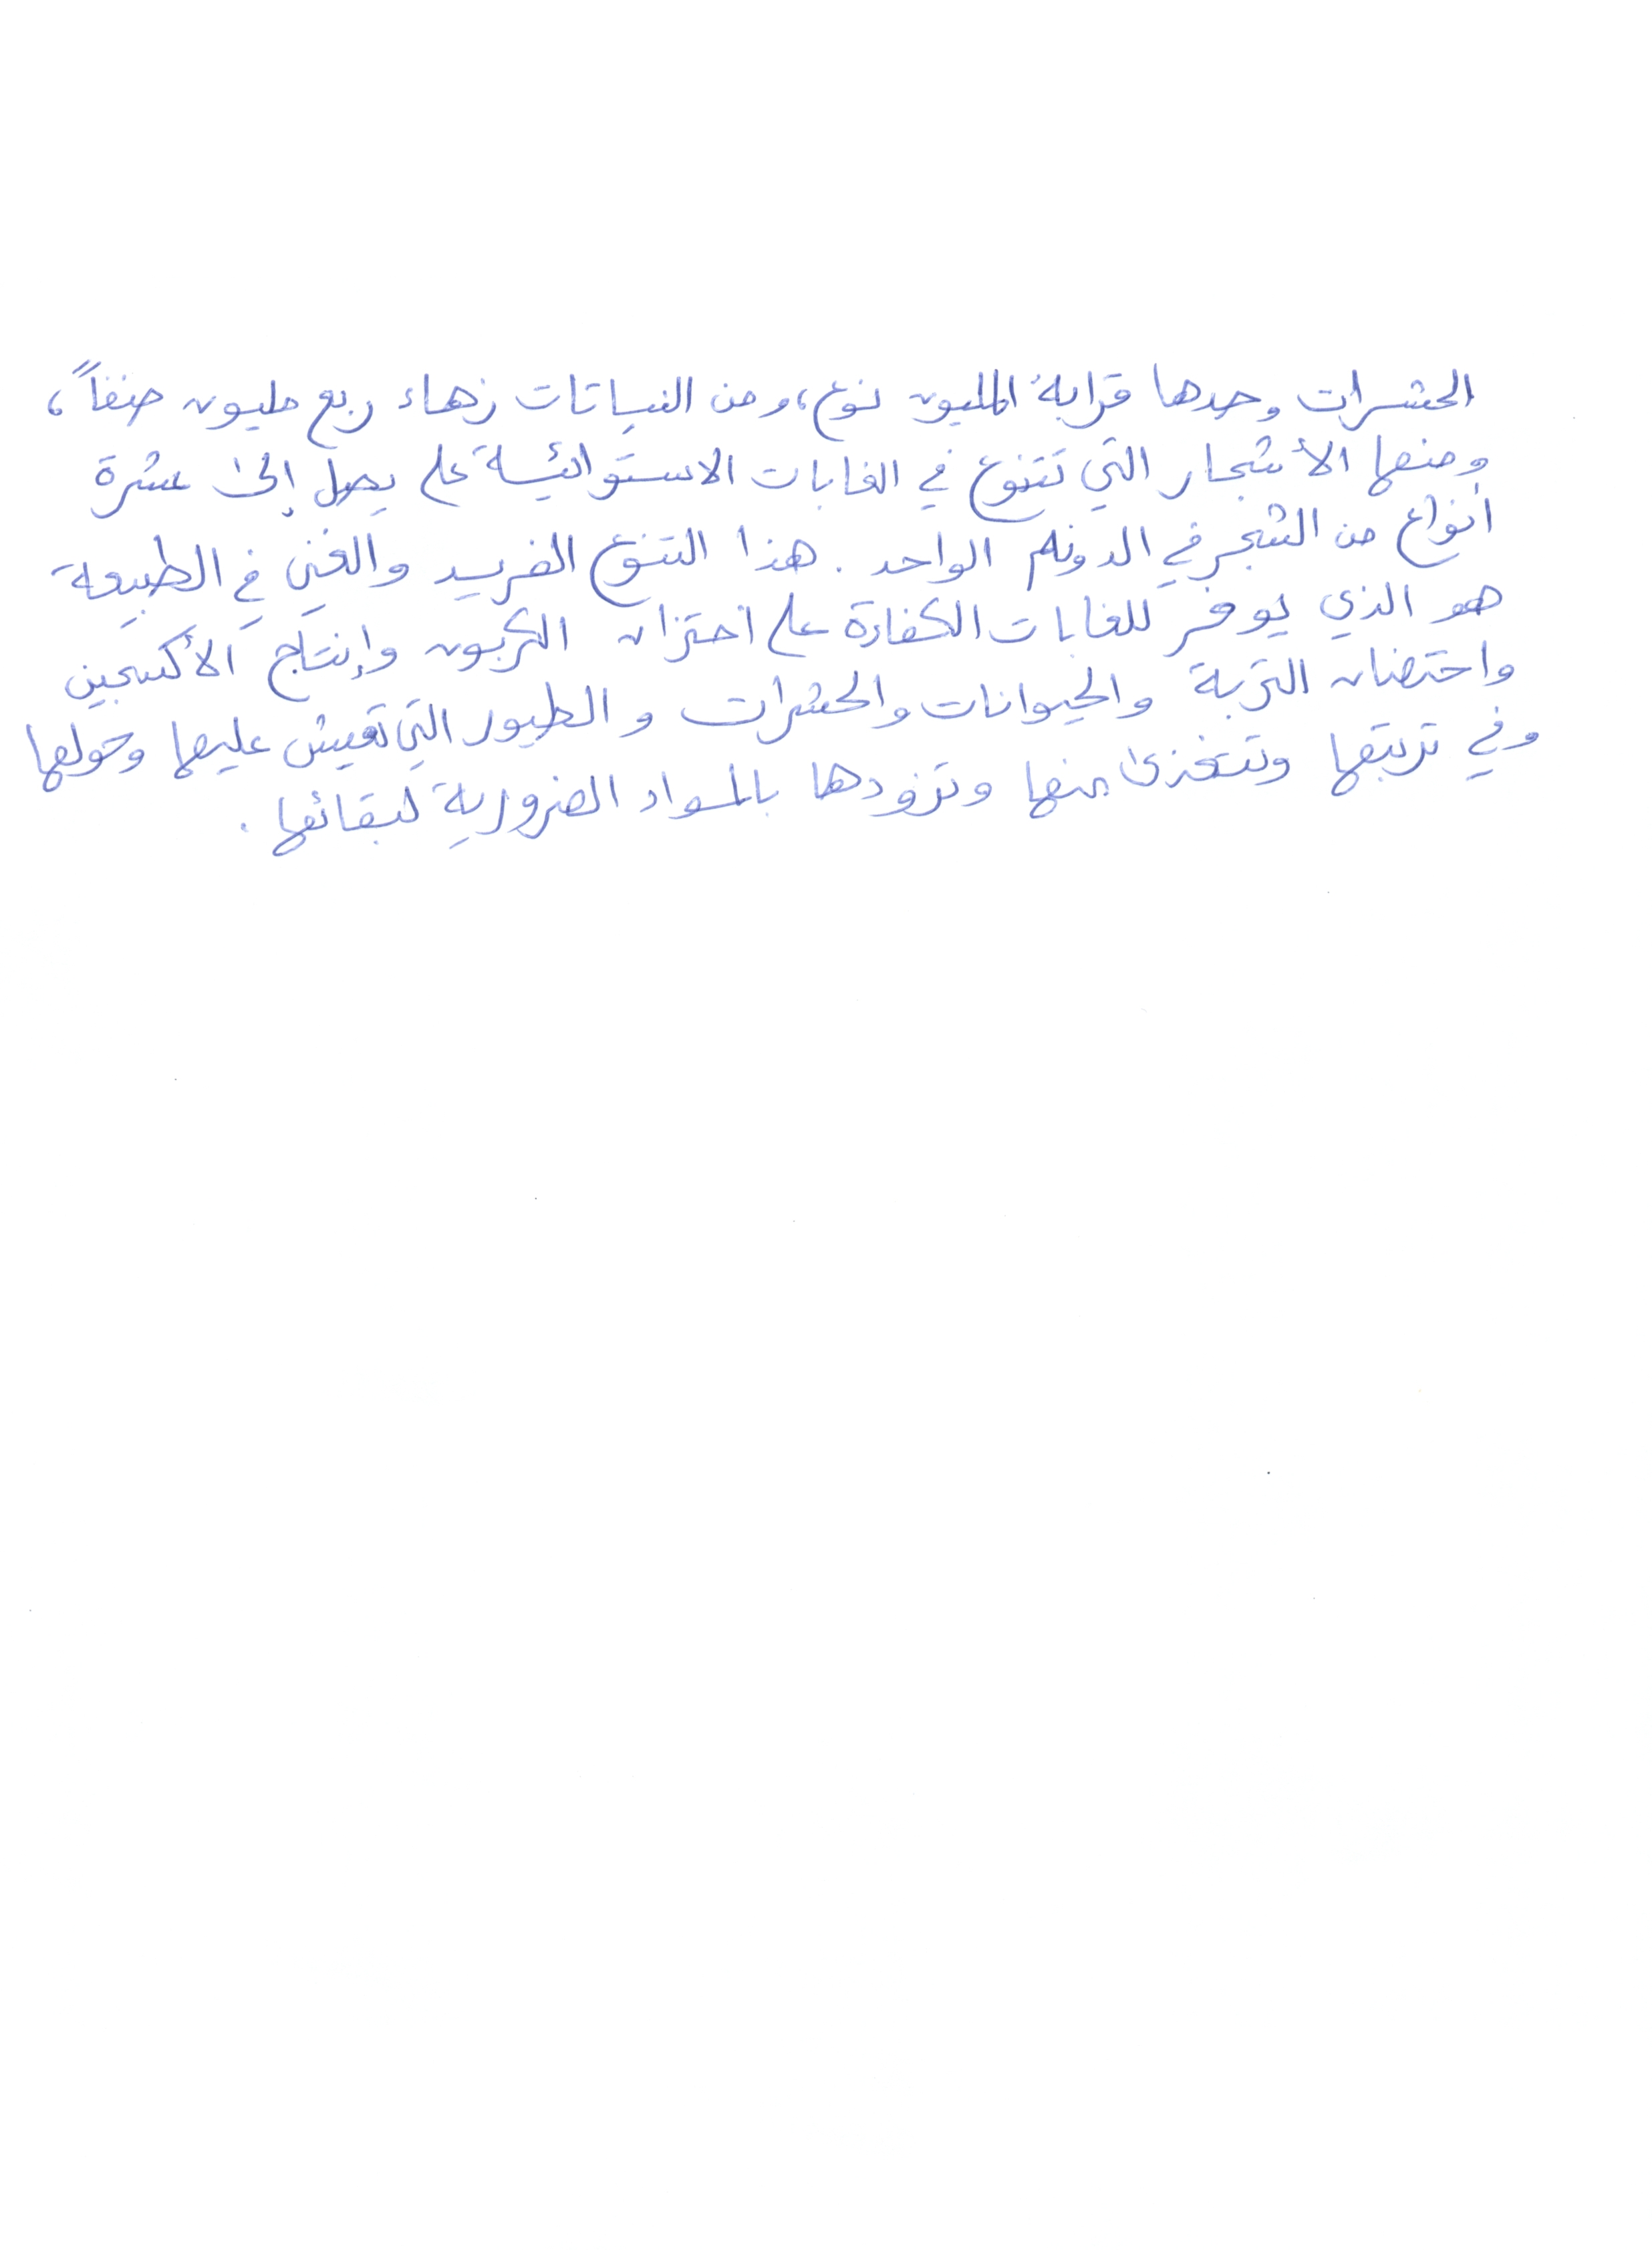 الحشرات وحدها قرابة المليون نوع، ومن النباتات زهاء ربع مليون صنفاً،
ومنها الأشجار التي تتنوع في الغابات الاستوائية على يصل إلى عشرة
أنواع من الشجر في الدونم الواحد. هذا التنوع الفريد والغني في الطبيعة
هو الذي يوفر للغابات الكفاءة على اختزان الكربون وإنتاج الأكسجين
واحتضان التربة والحيوانات والحشرات والطيور التي تعيش عليها وحولها
وفي تربتها وتتغذى منها وتزودها بالمواد الضرورية لبقائها.